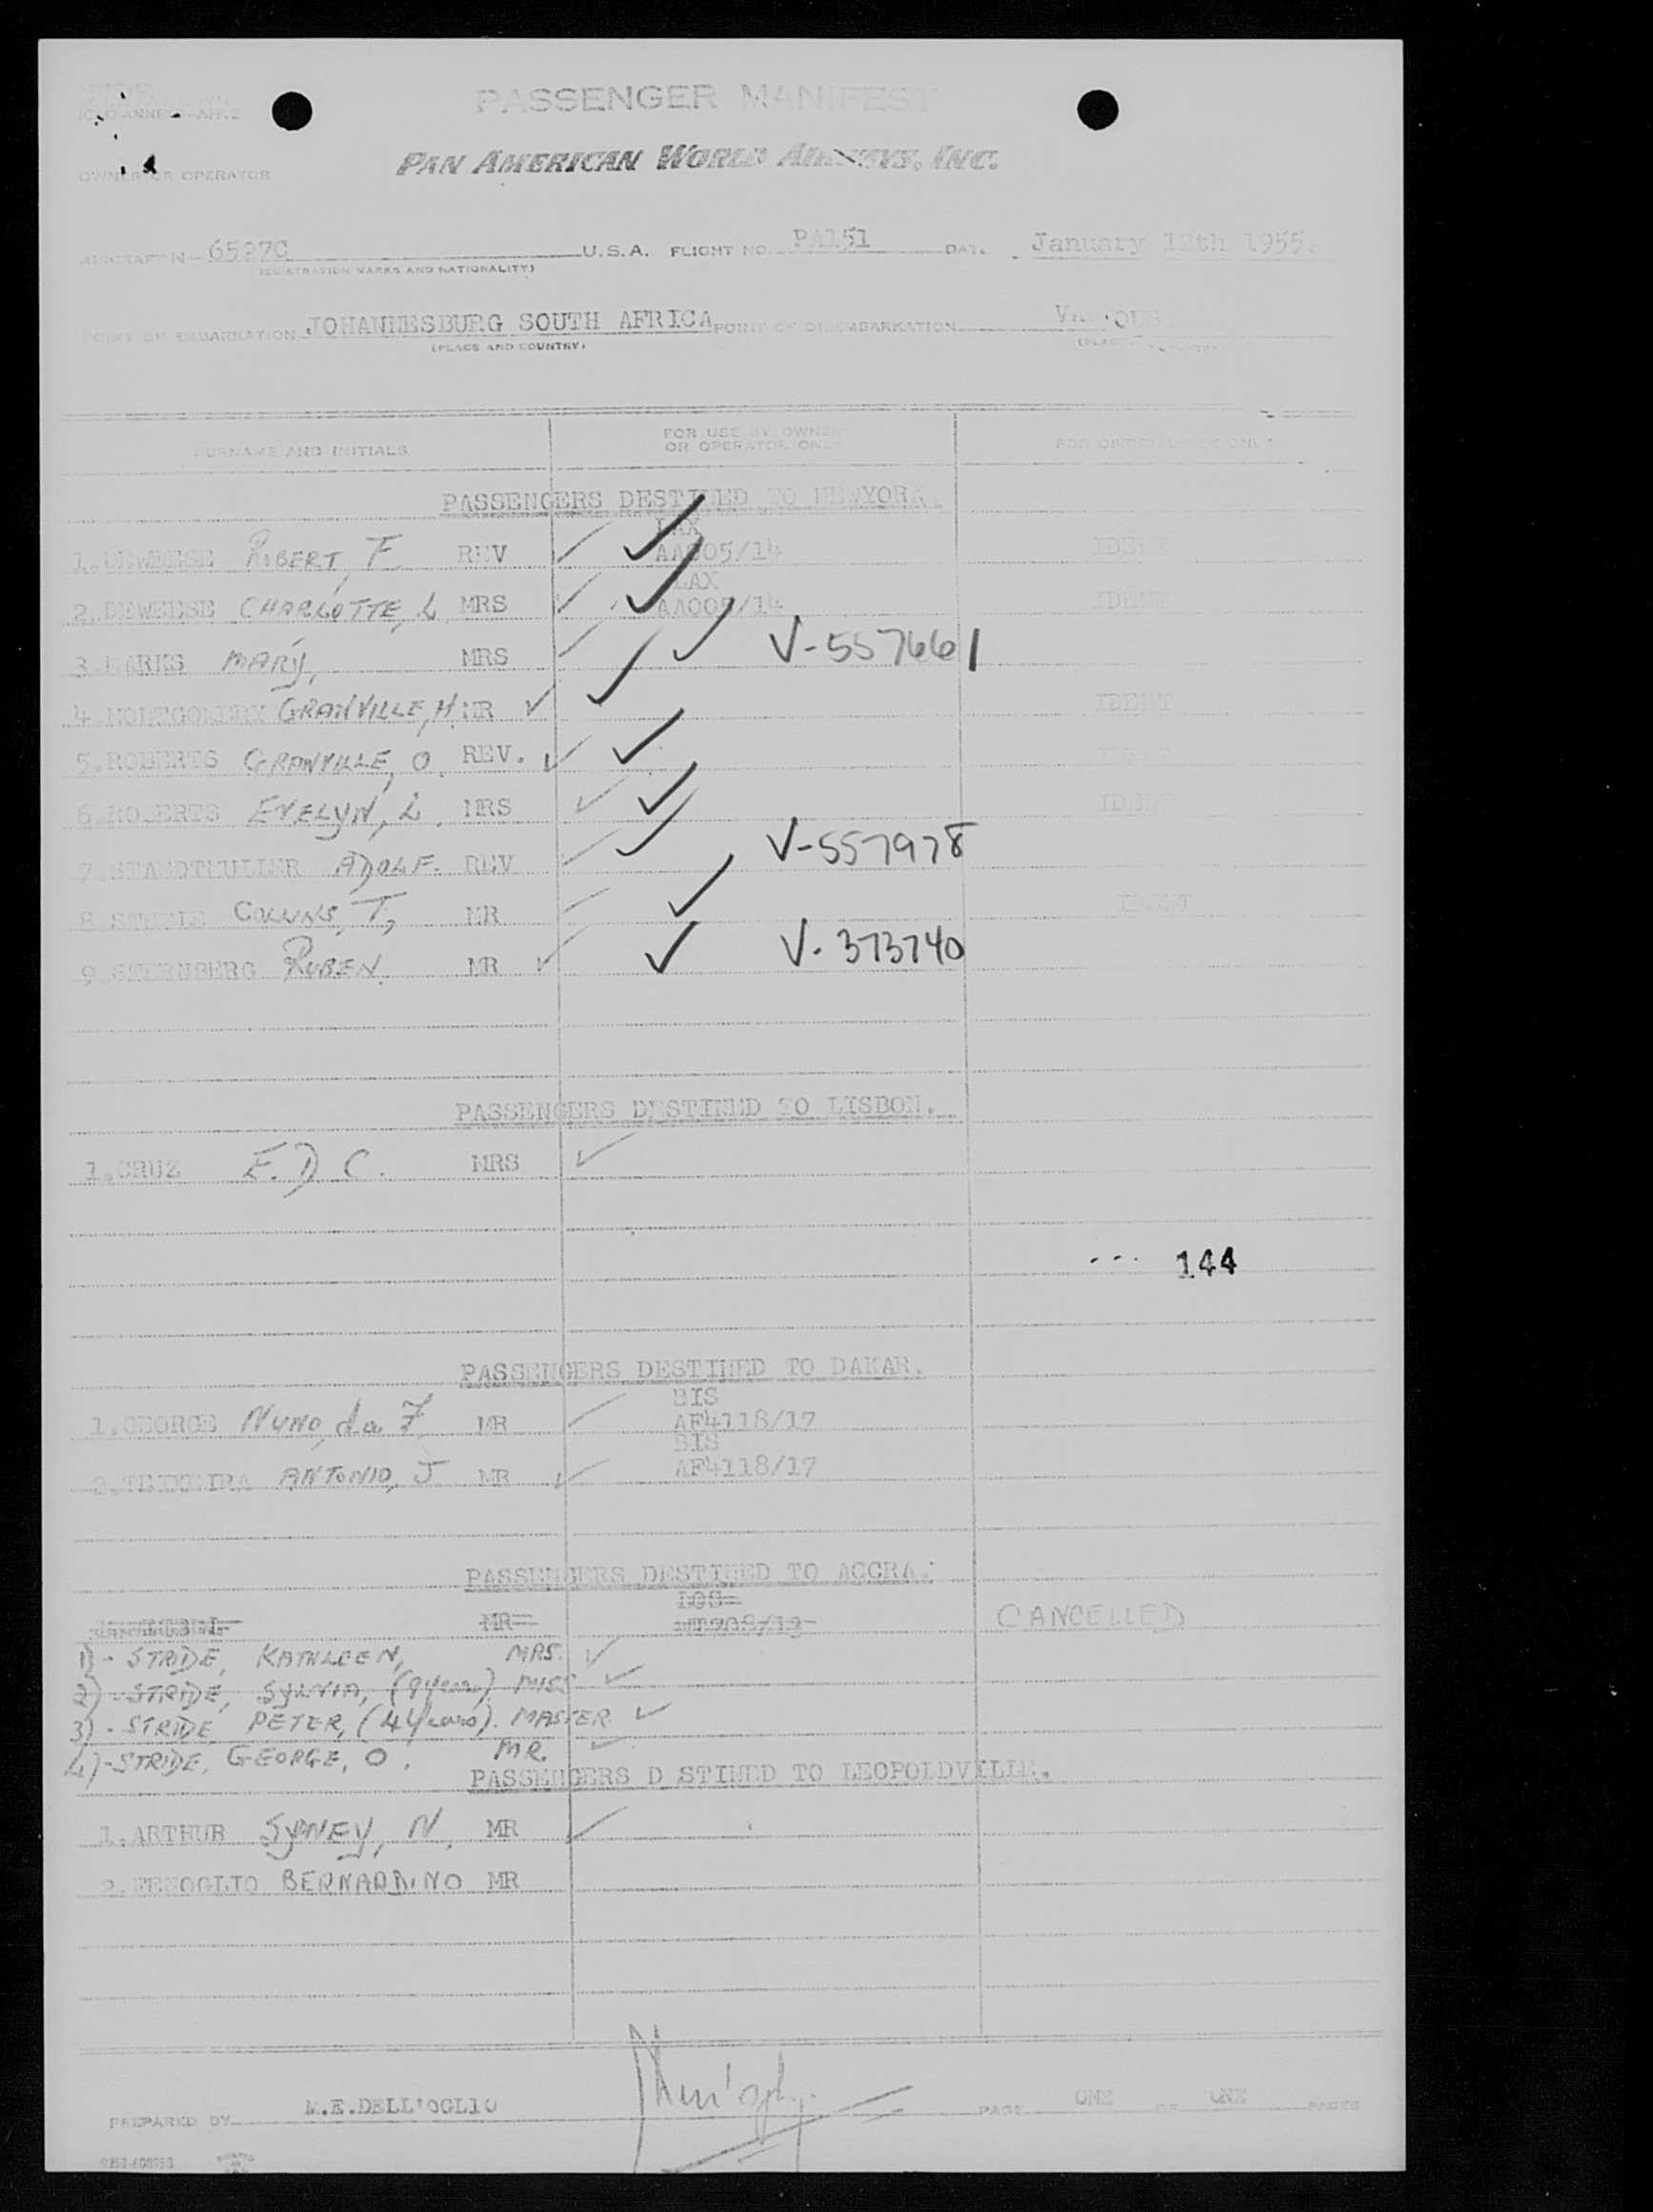 PASSENGER MANIFEST
PAN AMERICAN WORLD AIRWAYS, INC.
OWNER OR OPERATOR
AIRCRAFT N- 6527C U.S.A. FLIGHT NO. PA151 DATE January 12th 1955.
(REGISTRATION MARKS AND NATIONALITY)
POINT OF EMBARKATION JOHANNESBURG SOUTH AFRICA POINT OF DISEMBARKATION VARIOUS
(PLACE AND COUNTRY)
SURNAME AND INITIALS FOR USE BY OWNER OR OPERATOR ONLY FOR OFFICIAL USE ONLY
PASSENGERS DESTINED TO NEWYORK.
LAX
1.DEWEESE ROBERT, F. REV AA005/14 IDENT
LAX
2.DEWEESE CHARLOTTE, L. MRS AA005/14 IDENT
3.MARKS MARY, MRS V-557661
4.MONTGOMERY GRANVILLE, H. MR IDENT
5.ROBERTS GRANVILLE, O. REV. IDENT
6.ROBERTS EVELYN, L. MRS IDENT
7. ADOLF. REV V-557978
8.STEELE COLLINS, T, MR IDENT
9.STERNBERG RUBEN. MR V-373740
PASSENGERS DESTINED TO LISBON.
1.CRUZ E. D C. MRS
144
PASSENGERS DESTINED TO DAKAR.
BIS
1.GEORGE NUNO, da F. MR AF4118/17
BIS
2.TEIXEIRA ANTONIO, J MR AF4118/17
PASSENGERS DESTINED TO ACCRA.
LOS
MR CANCELLED
1) - STRIDE, KATHLEEN, MRS.
2) - STRIDE, SYLVIA, (9 years) MISS
3) - STRIDE PETER, (4 years). MASTER
4) - STRIDE, GEORGE, O. MR.
PASSENGERS D STINED TO LEOPOLDVILLE.
1.ARTHUR SYDNEY, N. MR
2.FENOGLIO BERNARDINO MR
PREPARED BY M.E.DELL'OGLIO PAGE ONE OF ONE PAGES